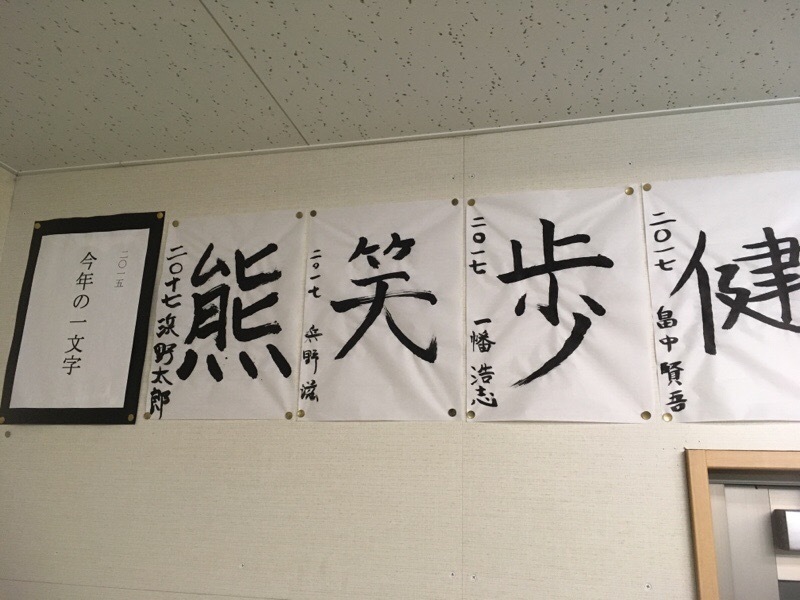 二〇一五
今年の一文字
熊
二〇十七 浜野太郎
笑
二〇一七 兵野滋
歩
二〇一七 一幡浩志
健
二〇一七 畠中賢吾